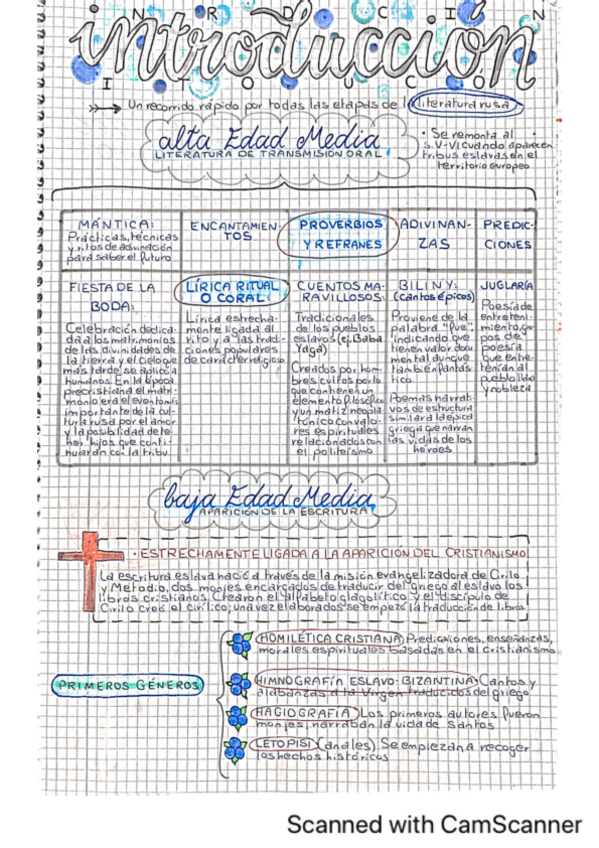 INTRODUCCIÓN
introducción
Un recorrido rápido por todas las etapas de la literatura rusa
alta Edad Media
LITERATURA DE TRANSMISIÓN ORAL
· Se remonta al
s.V-VI cuando aparecen
tribus eslavas en el
territorio europeo
MÁNTICA:
Prácticas, técnicas
y ritos de adivinación
para saber el futuro
ENCANTAMIEN-
TOS
PROVERBIOS
Y REFRANES
ADIVINAN-
ZAS
PREDIC-
CIONES
FIESTA DE LA
BODA:
Celebración dedica-
da a los matrimonios
de las divinidades de
la tierra y el cielo que
más tarde se aplicó a
humanos. En la época
precristiana el matri-
monio era el evento más
importante de la cul-
tura rusa por el amor
y la posibilidad de te-
ner hijos que conti-
nuarán con la tribu
LÍRICA RITUAL
O CORAL:
Lírica estrecha-
mente ligada al
rito y a las tradi-
ciones populares
de carácter religioso
CUENTOS MA-
RAVILLOSOS:
Tradicionales
de los pueblos
eslavos (ej. Baba
Yagá)
Creados por hom-
bres cultos por lo
que contienen un
elemento filosófico
y un matiz neopla-
tónico con valo-
res espirituales
relacionados con
el politeísmo
BILINY:
(cantos épicos)
Proviene de la
palabra "fue",
indicando que
tienen valor docu
mental aunque
también fantás
tico.
Poemas narrati-
vos de estructura
similar a la épica
griega que narran
las vidas de los
héroes
JUGLARÍA
Poesía de
entreteni-
miento, ga
pos de
poesía
que entre-
tenían al
pueblo llano
y nobleza
baja Edad Media
APARICIÓN DE LA ESCRITURA
· ESTRECHAMENTE LIGADA A LA APARICIÓN DEL CRISTIANISMO
La escritura eslava nació a través de la misión evangelizadora de Cirilo
y Metodio, dos monjes encargados de traducir del griego al eslavo los
libros cristianos. Crearon el alfabeto glagolítico y el discípulo de
Cirilo creó el cirílico; una vez elaborados se empezó la traducción de libros
PRIMEROS GÉNEROS
HOMILÉTICA CRISTIANA Predicaciones, enseñanzas,
morales espirituales basadas en el cristianismo
HIMNOGRAFÍA ESLAVO-BIZANTINA Cantos y
alabanzas a la Virgen traducidos del griego
HAGIOGRAFÍA Los primeros autores fueron
monjes; narraban la vida de santos
LETOPISI (anales) Se empiezan a recoger
los hechos históricos
Scanned with CamScanner